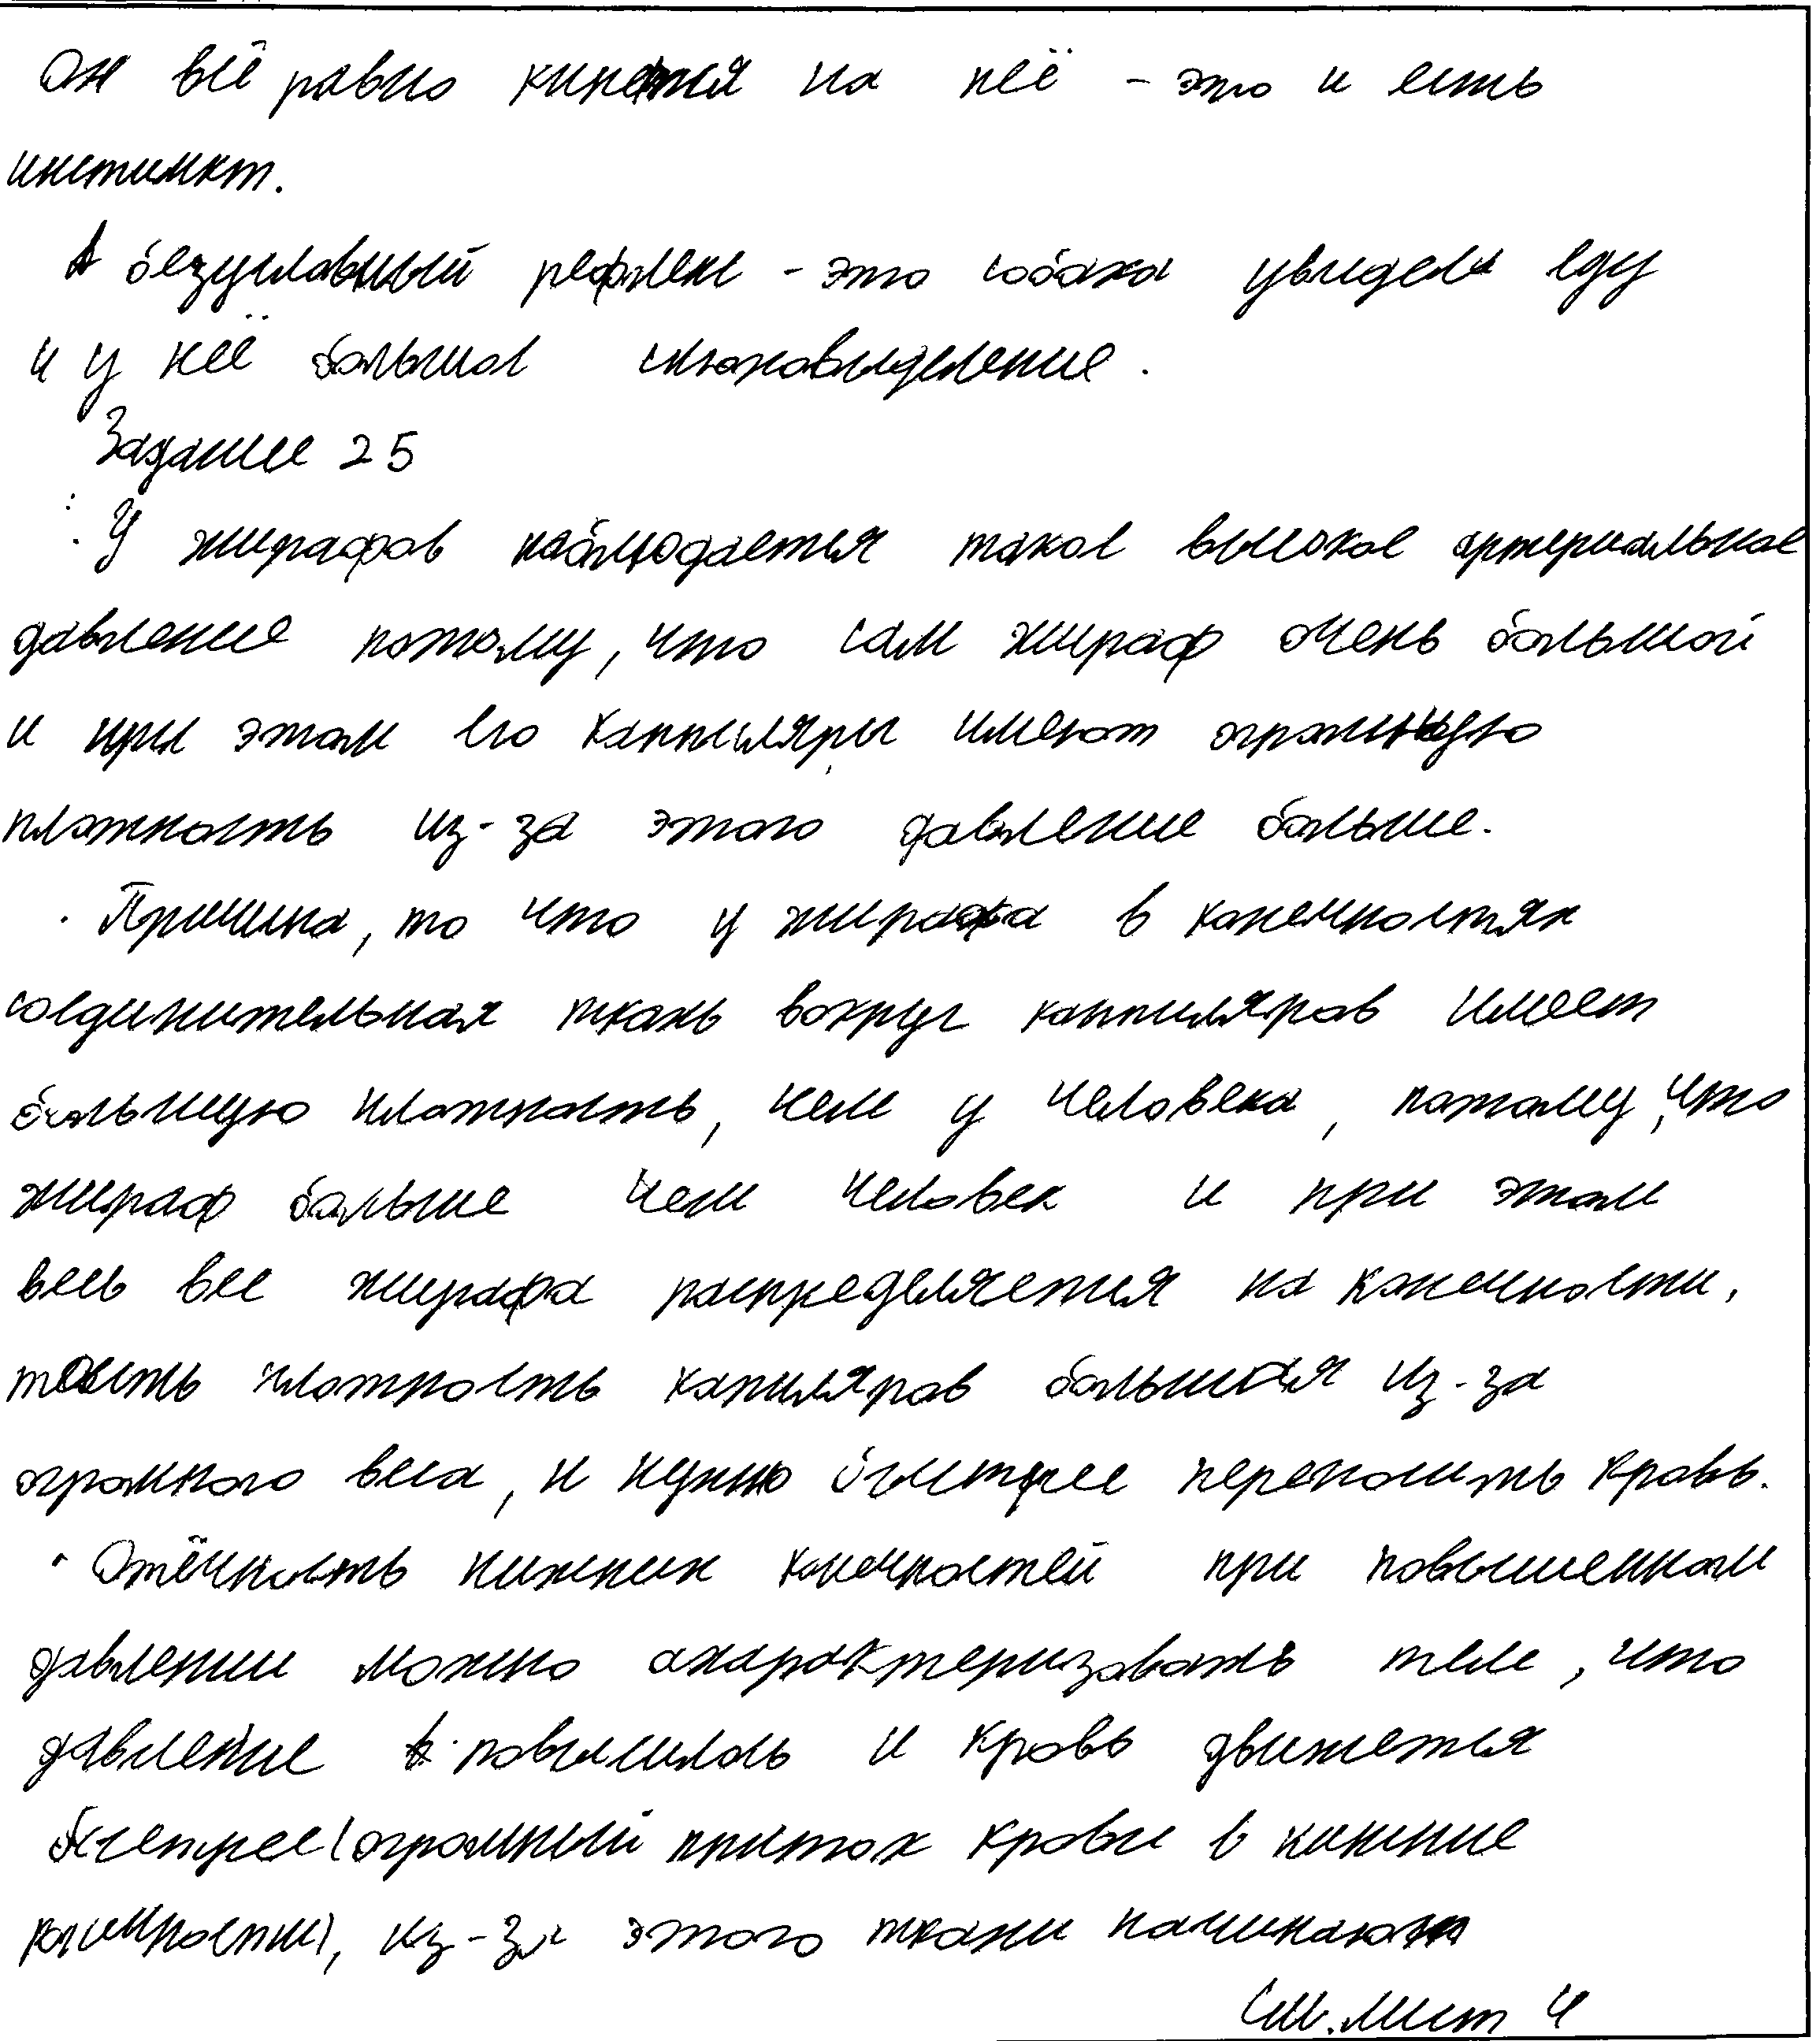 Он всё равно кинется на неё - это и есть
инстинкт.
А безусловный рефлекс - это собака увидела еду
и у неё большое слюновыделение.
Задание 25
· У жирафов наблюдается такое высокое артериальное
давление потому, что сам жираф очень большой
и при этом его каппиляры имеют огромную
плотность из-за этого давление больше.
· Причина, то что у жирафа в конечностях
соединительная ткань вокруг каппиляров имеет
большую плотность, чем у человека, потому, что
жираф больше чем человек и при этом
весь вес жирафа распределяется на конечности,
тоесть плотность капиляров большая из-за
огромного веса, и нужно быстрее переносить кровь.
· Отёчность нижних конечностей при повышенном
давлении можно охарактеризовать тем, что
давление повысилось и кровь движется
быстрее (огромный приток крови в нижние
конечности), из-за этого ткани начинают
См. лист 4